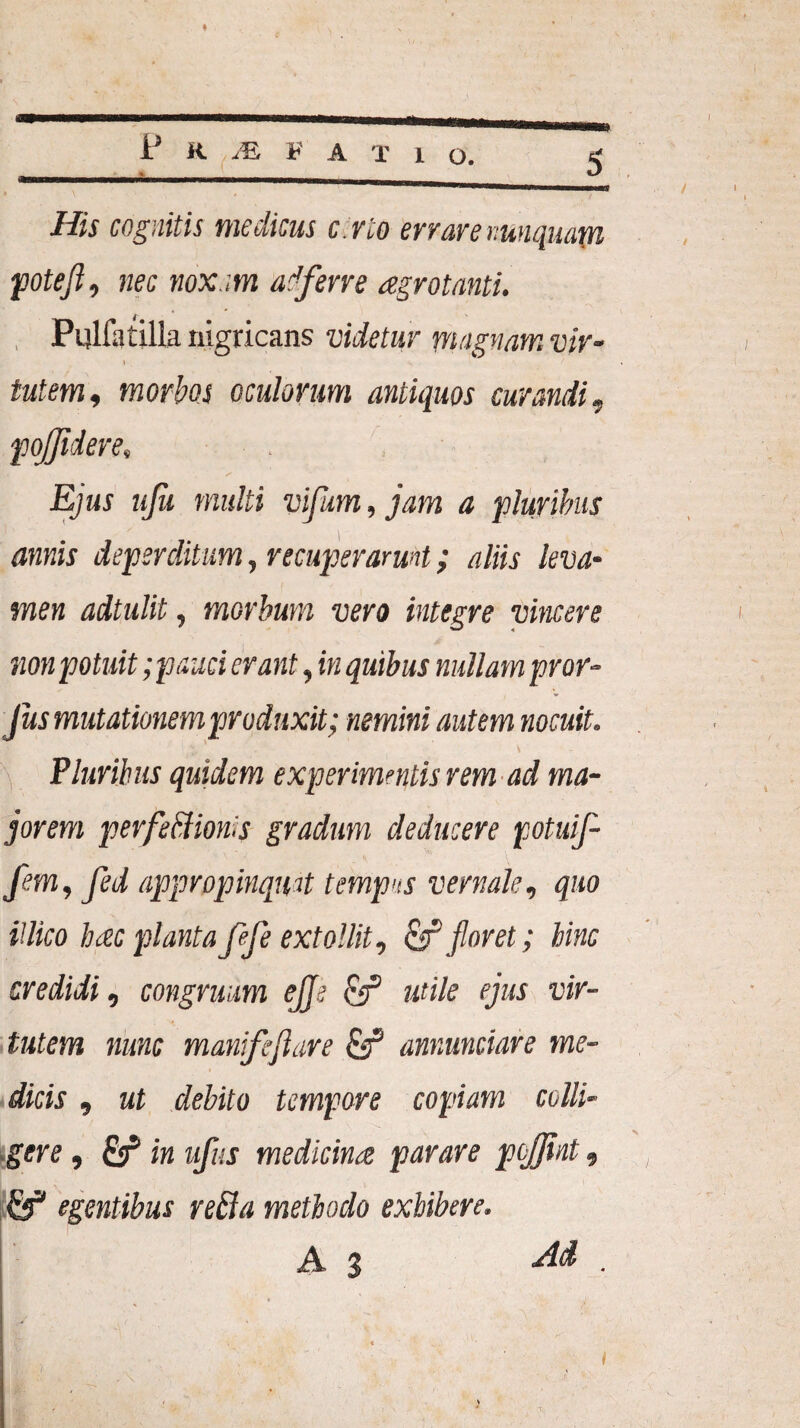 PRÆFATIO. 5
His cognitis medicus certo errare nunquam
poteſt, nec noxam adferre ægrotanti.
Pulſatilla nigricans videtur magnam vir-
tutem, morbos oculorum antiquos curandi,
poſſidere.
Ejus uſu multi viſum, jam a pluribus
annis deperditum, recuperarunt; aliis leva-
men adtulit, morbum vero integre vincere
non potuit; pauci erant, in quibus nullam pror-
ſus mutationem produxit; nemini autem nocuit.
Pluribus quidem experimentis rem ad ma-
jorem perfectionis gradum deducere potuiſ-
ſem, ſed appropinquat tempus vernale, quo
illico hæc planta ſeſe extollit, & floret; hinc
credidi, congruum eſſe & utile ejus vir-
tutem nunc manifeſtare & annunciare me-
dicis, ut debito tempore copiam colli-
gere, & in uſus medicinæ parare poſſint,
& egentibus recta methodo exhibere.
A 3 Ad